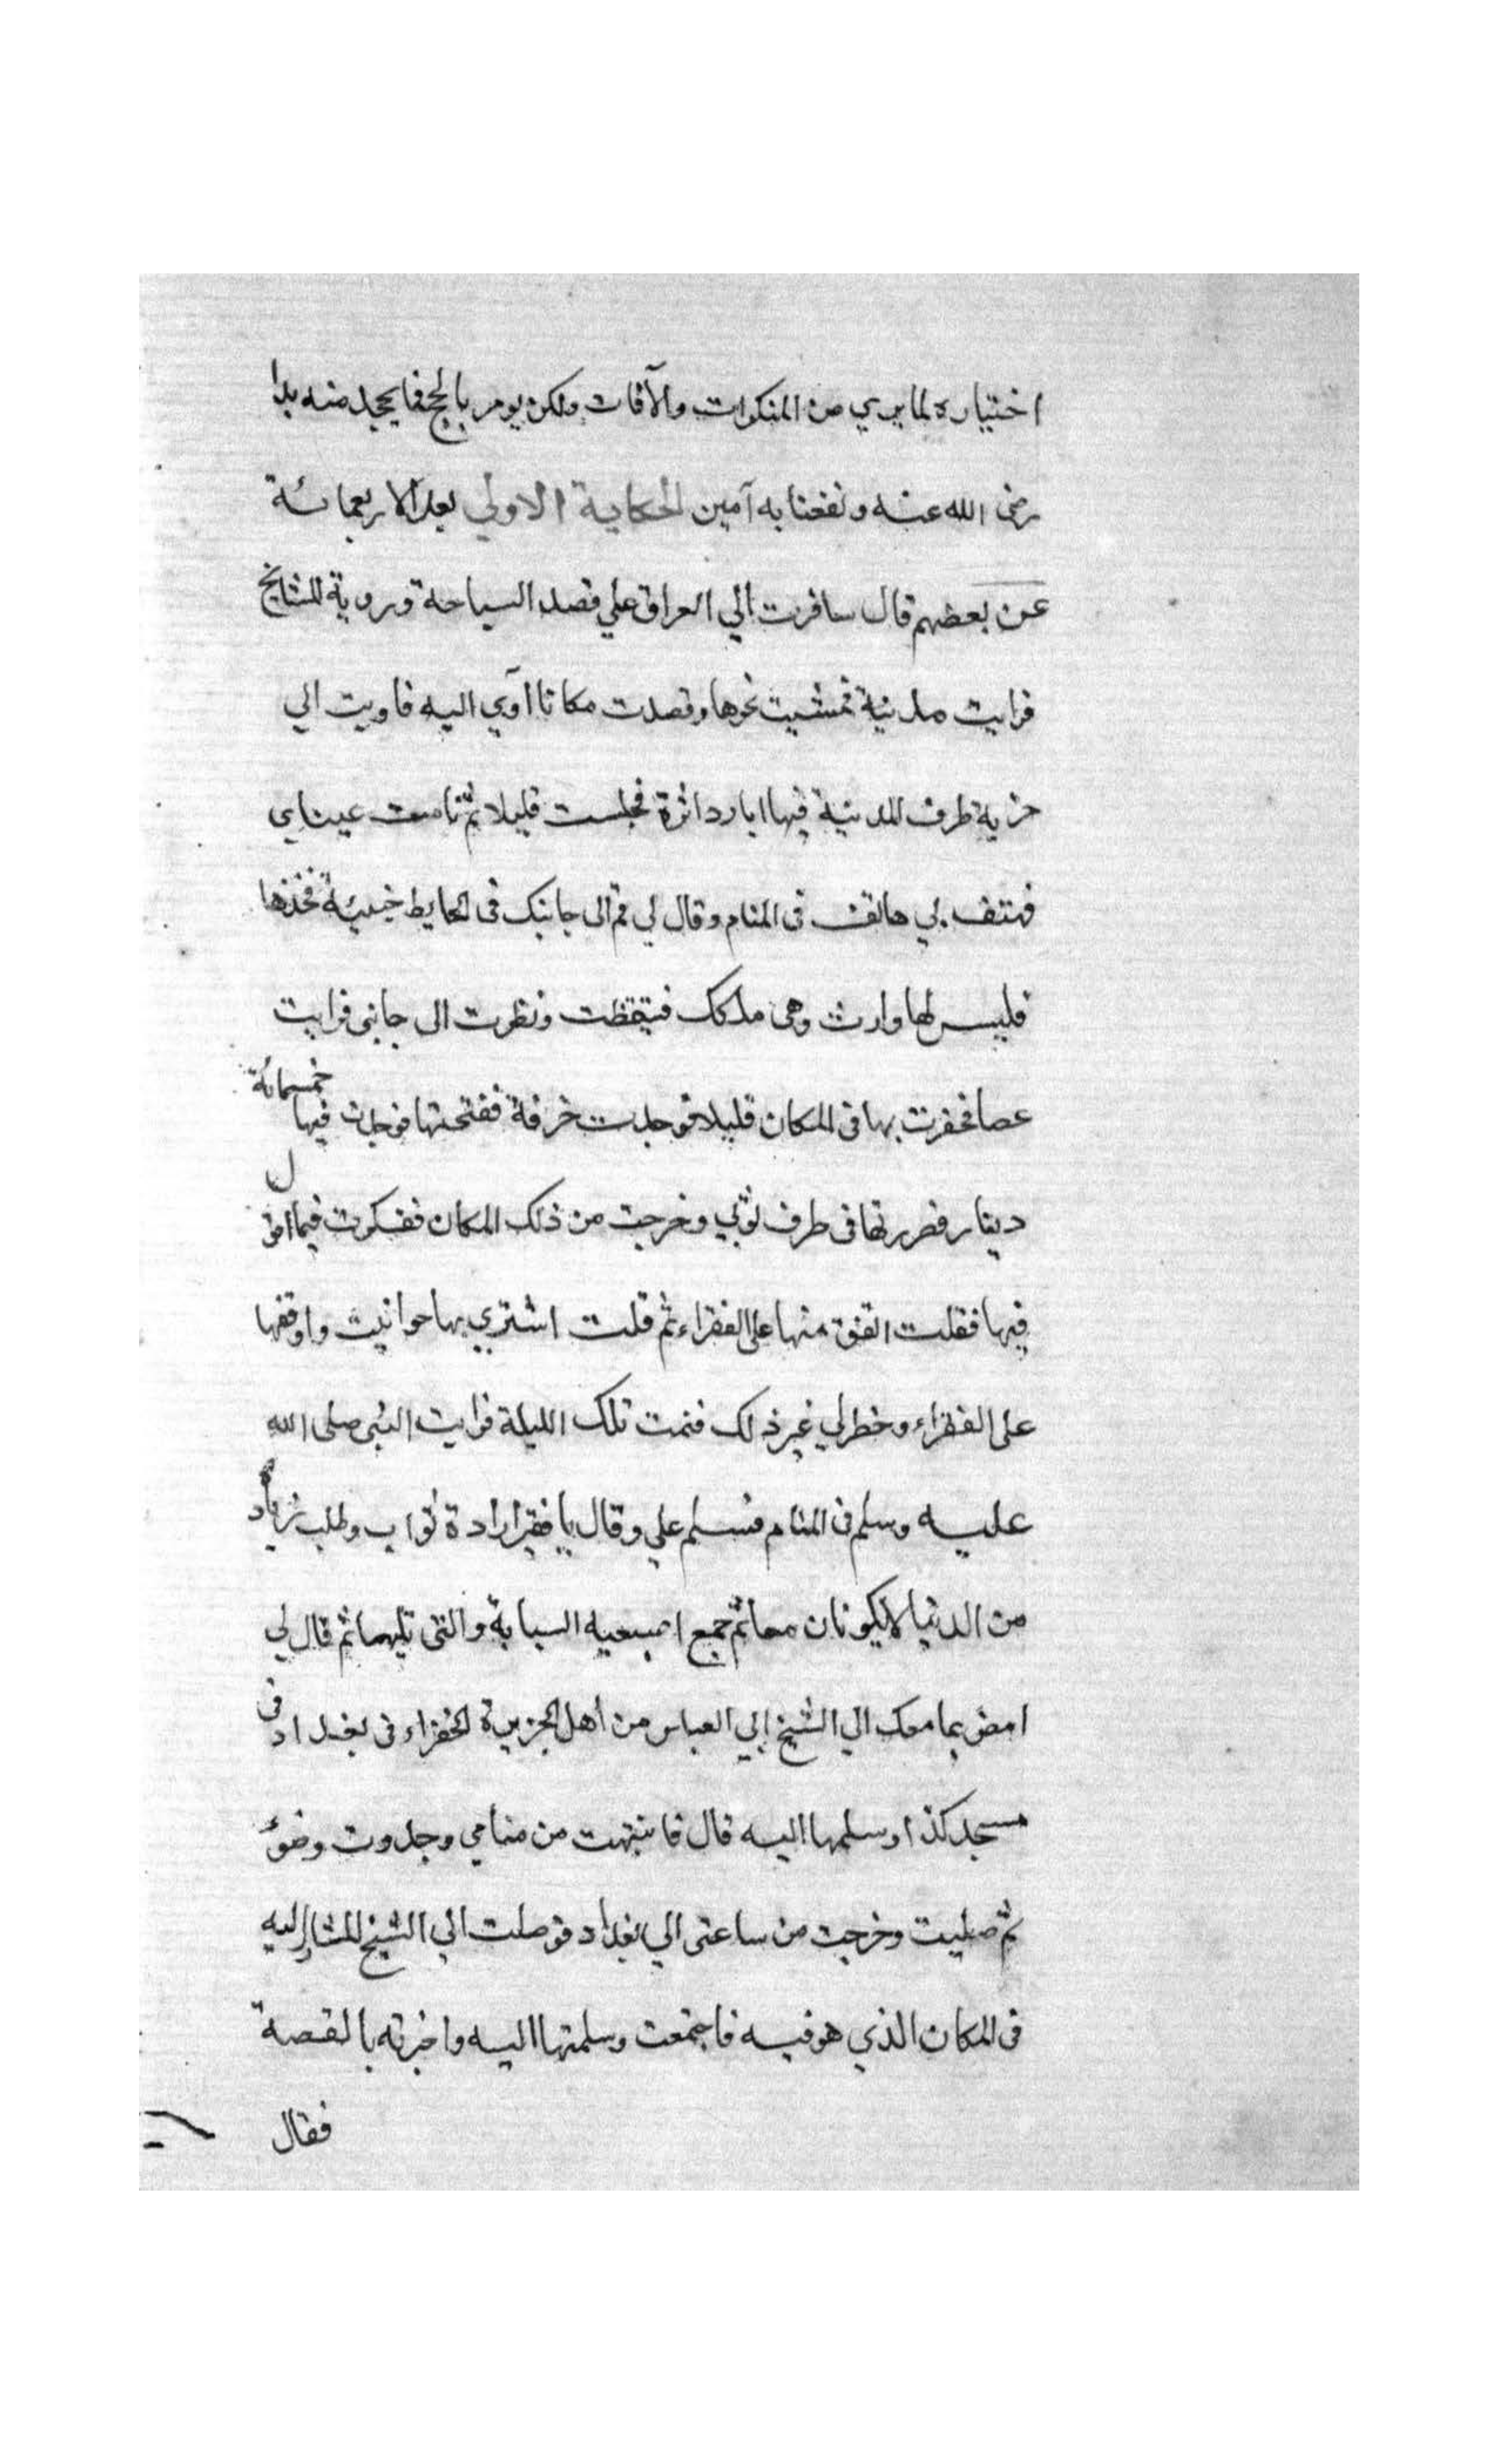 اختياره لما يري من المنكرات والآفات ولكن يومر بالحج فما يجد منه بدا
رضى الله عنه ونفعنا به آمين الحكاية الاولي بعد الاربعمائة
عن بعضهم قال سافرت الي العراق علي قصد السياحة وروية المشايخ
فرايت مدينة فمشيت نحوها وقصدت مكانا اآوي اليه فاويت الي
خربة طرف المدينة فيها ابار داثرة فجلست قليلا ثم نامت عيناي
فهتف بي هاتف في المنام وقال لي قم الى جانبك في الحايط خبيئة فخذها
فليس لها وارث وهي ملكك فتيقظت ونظرت الى جانبي فرايت
عصا فحفرت بها في المكان قليلا فوجدت خرقة ففتحتها فوجدت فيها خمسمائة
دينار فصررتها في طرف ثوبي وخرجت من ذلك المكان ففكرت فيما افعل
فيها فقلت انفق منها على الفقراء ثم قلت اشتري بها حوانيت واوقفها
على الفقراء وخطر لي غير ذلك فنمت تلك الليلة فرايت النبي صلى الله
عليه وسلم في المنام فسلم علي وقال يا فقير ارادة ثواب وطلب زيادة
من الدنيا لا يكونان معا ثم جمع اصبعيه السبابة والتي تليهما ثم قال لي
امض بما معك الي الشيخ ابي العباس من اهل الجزيرة الخضراء في بغداد في
مسجد كذا وسلمها اليه قال فانتبهت من منامي وجددت وضوء
ثم صليت وخرجت من ساعتي الي بغداد فوصلت الي الشيخ المشار اليه
في المكان الذي هو فيه فاجتمعت وسلمتها اليه واخبرته بالقصة
فقال